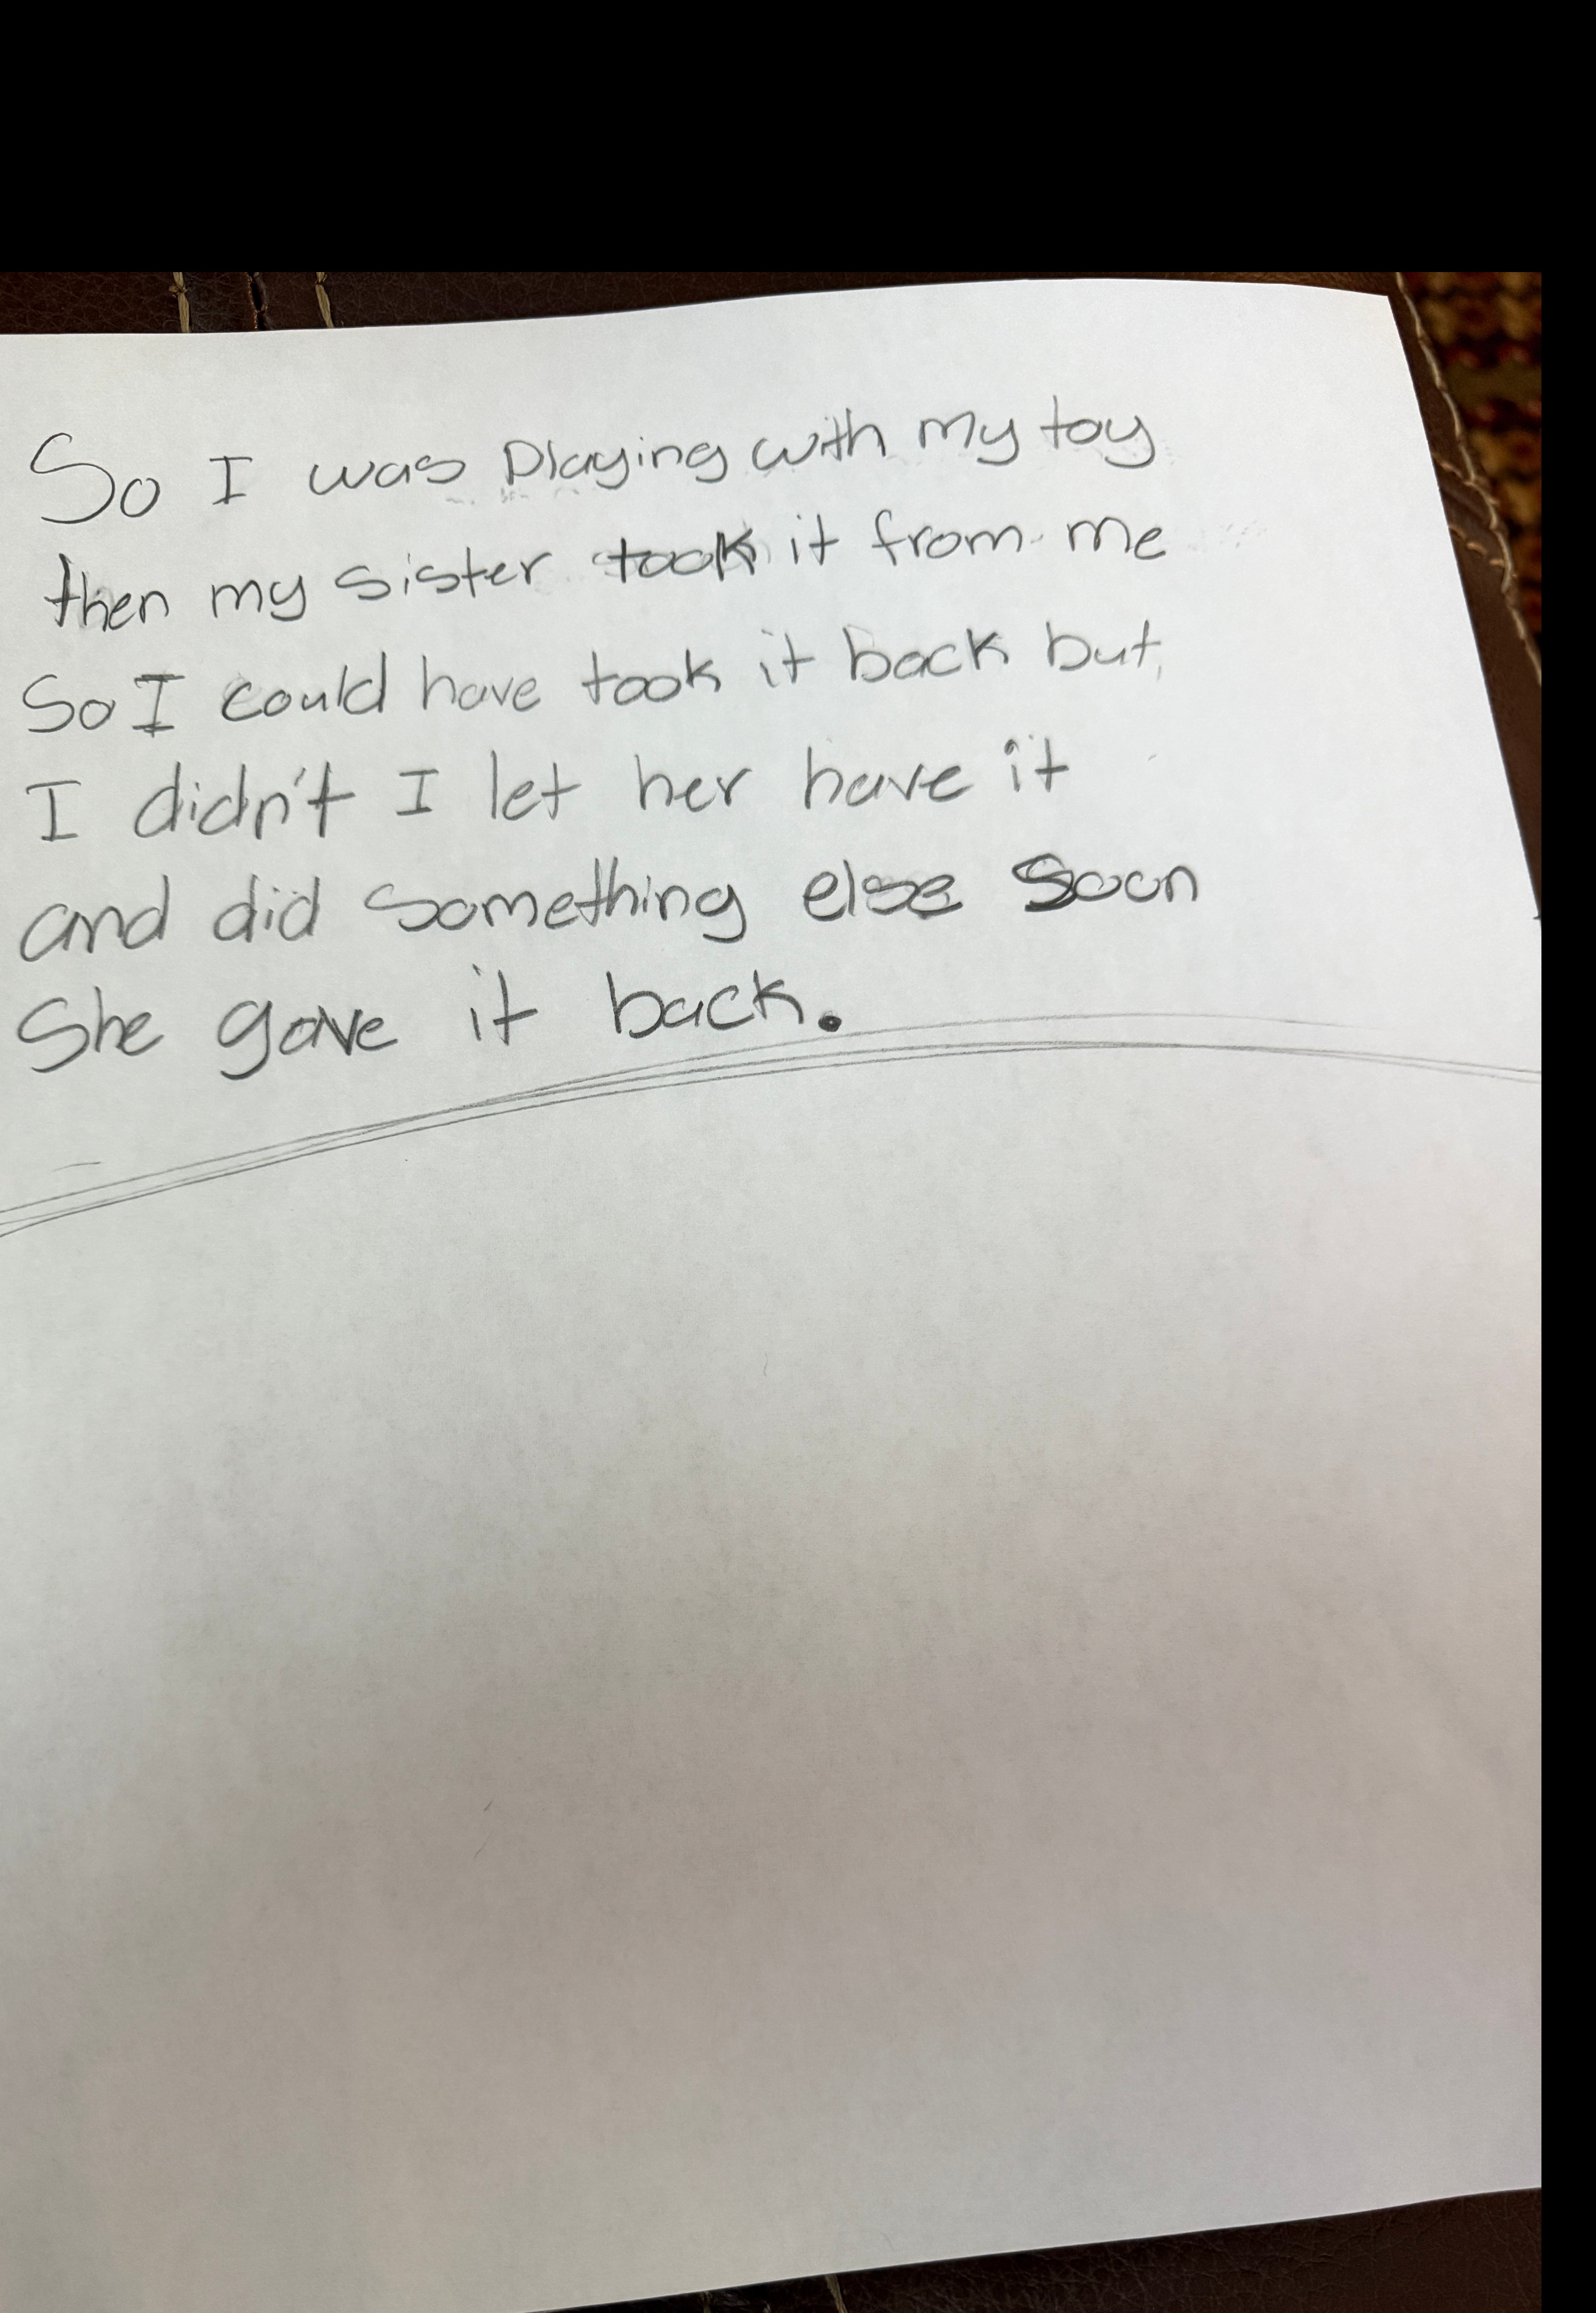 So I was Playing with my toy
then my sister took it from me
So I could have took it back but
I didn't I let her have it
and did something else Soon
She gave it back.